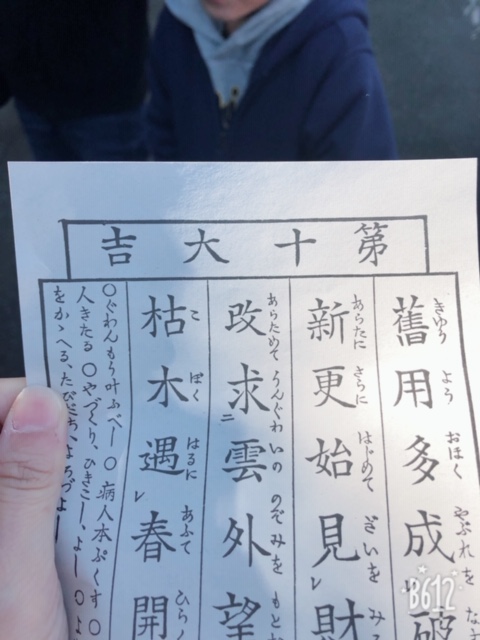 第十大吉
舊用多成破
きゆう よう おほく やぶれを な
新更始見レ財
あらたに さらに はじめて ざいを み
改求二雲外望
あらためて うんぐわいの のぞみを もと
枯木遇レ春開
こ ぼく はるに あふて ひら
〇ぐわんもう叶ふべし〇病人本ぷくす〇
人きたる〇やづくり、ひきこし、よし〇よ
をかゝへる、たびだち、よろづよし
B612